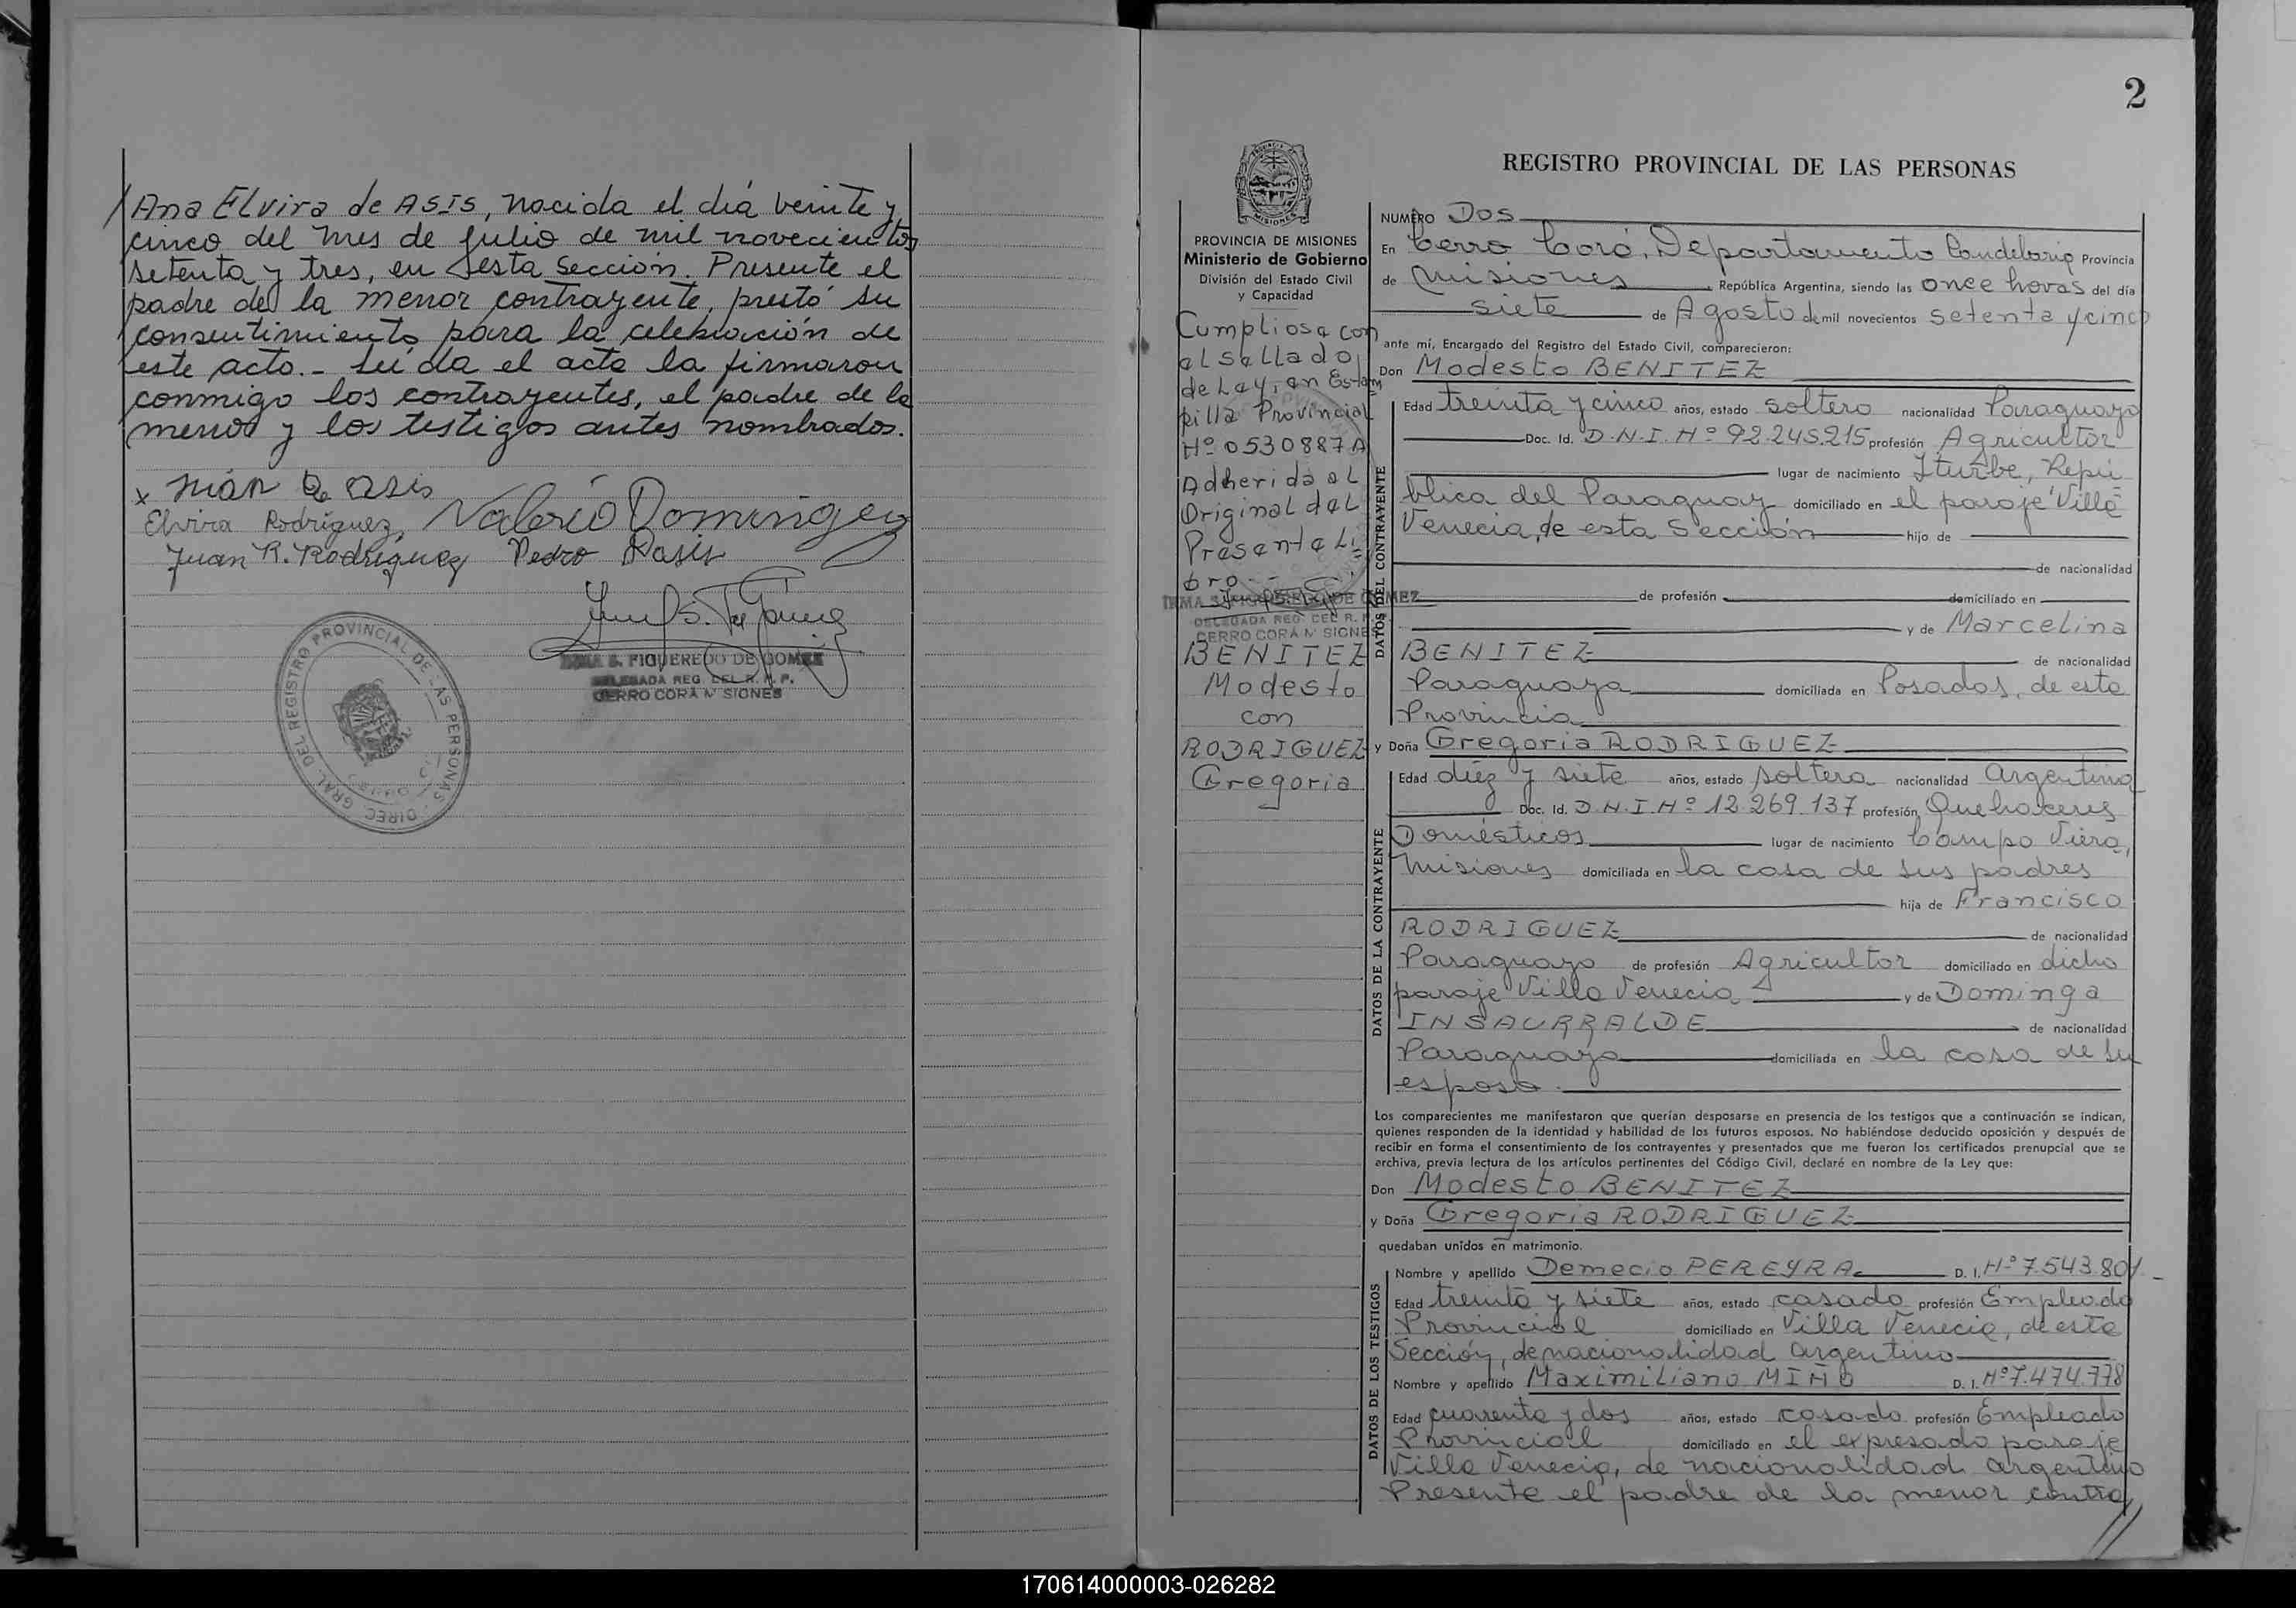 Ana Elvira de ASIS, nacida el día veinte y
cinco del mes de Julio de mil novecientos
setenta y tres, en esta Sección. Presente el
padre de la menor contrayente, prestó su
consentimiento para la celebración de
este acto.- Leída el acta la firmaron
conmigo los contrayentes, el padre de la
menor y los testigos antes nombrados.
x Juan De asis
Elvira Rodríguez, Valerio Dominguez
Juan R. Rodriguez Pedro Dasis
IRMA S. FIGUEREDO DE GOMEZ
DELEGADA REG. DEL R. P. P.
CERRO CORA MISIONES
DIREC. GRAL. DEL REGISTRO PROVINCIAL DE LAS PERSONAS
2
REGISTRO PROVINCIAL DE LAS PERSONAS
MISIONES
PROVINCIA DE MISIONES
Ministerio de Gobierno
División del Estado Civil
y Capacidad
Cumpliose con
el sellado
de Ley, en Estam
pilla Provincial
Nº 0530887A
Adherida al
Original del
Presente Li
bro.-
IRMA S. FIGUEREDO DE GOMEZ
DELEGADA REG. DEL R. P.
CERRO CORA MISIONES
BENITEZ
Modesto
con
RODRIGUEZ
Gregoria
NUMERO Dos
En Cerro Corá, Departamento Candelaria Provincia
de Misiones República Argentina, siendo las once horas del día
siete de Agosto de mil novecientos setenta y cinco
ante mí, Encargado del Registro del Estado Civil, comparecieron:
Don Modesto BENITEZ
DATOS DEL CONTRAYENTE
Edad treinta y cinco años, estado soltero nacionalidad Paraguaya
Doc. Id. D.N.I. Nº 92.245.215 profesión Agricultor
lugar de nacimiento Iturbe, Repú
blica del Paraguay domiciliado en el paraje Villa
Venecia, de esta Sección hijo de
de nacionalidad
de profesión domiciliado en
y de Marcelina
BENITEZ de nacionalidad
Paraguaya domiciliada en Posadas, de esta
Provincia
y Doña Gregoria RODRIGUEZ
DATOS DE LA CONTRAYENTE
Edad diez y siete años, estado soltera nacionalidad argentina
Doc. Id. D.N.I. Nº 12.269.137 profesión Quehaceres
Domésticos lugar de nacimiento Campo Viera,
Misiones domiciliada en la casa de sus padres
hija de Francisco
RODRIGUEZ de nacionalidad
Paraguayo de profesión Agricultor domiciliado en dicho
paraje Villa Venecia y de Dominga
INSAURRALDE de nacionalidad
Paraguaya domiciliada en la casa de su
esposo.
Los comparecientes me manifestaron que querían desposarse en presencia de los testigos que a continuación se indican,
quienes responden de la identidad y habilidad de los futuros esposos. No habiéndose deducido oposición y después de
recibir en forma el consentimiento de los contrayentes y presentados que me fueron los certificados prenupcial que se
archiva, previa lectura de los artículos pertinentes del Código Civil, declaré en nombre de la Ley que:
Don Modesto BENITEZ
y Doña Gregoria RODRIGUEZ
quedaban unidos en matrimonio.
DATOS DE LOS TESTIGOS
Nombre y apellido Demecio PEREYRA D. I. Nº 7.543.801
Edad treinta y siete años, estado casado profesión Empleado
Provincial domiciliado en Villa Venecia, de esta
Sección, de nacionalidad argentino
Nombre y apellido Maximiliano MIÑO D. I. Nº 7.474.778
Edad cuarenta y dos años, estado casado profesión Empleado
Provincial domiciliado en el expresado paraje
Villa Venecia, de nacionalidad argentino
Presente el padre de la menor contra
170614000003-026282